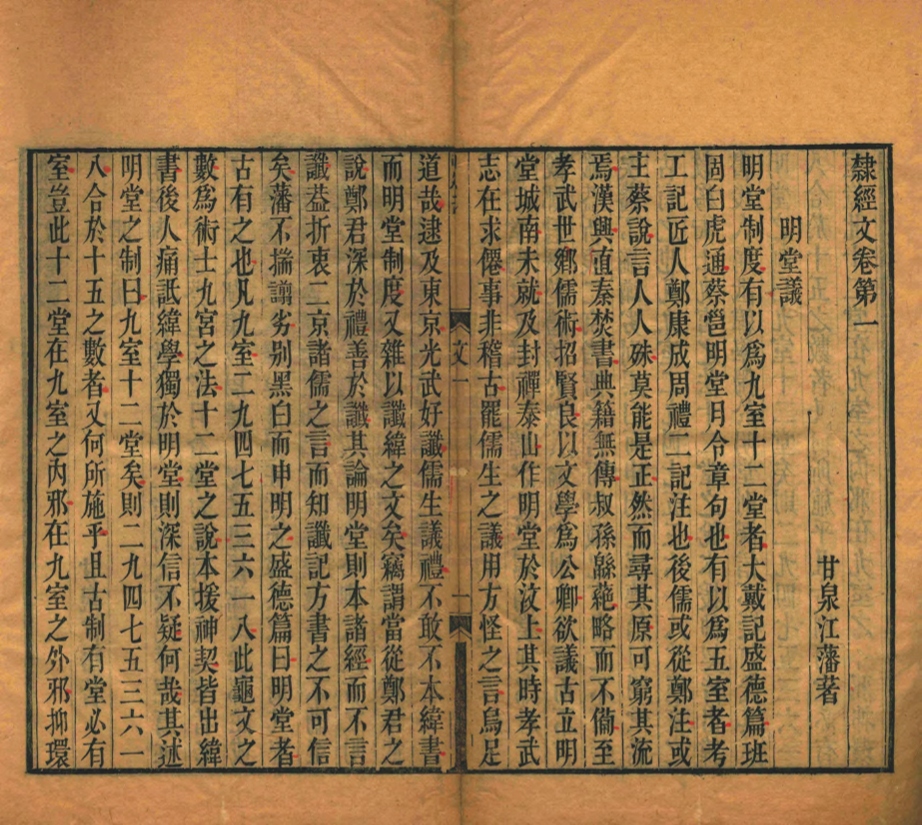 隸經文卷第一
甘泉江藩著
明堂議
明堂制度有以爲九室十二堂者大戴記盛德篇班
固白虎通蔡邕明堂月令章句也有以爲五室者考
工記匠人鄭康成周禮二記注也後儒或從鄭注或
主蔡說言人人殊莫能是正然而尋其原可窮其流
焉漢興直秦焚書典籍無傳叔孫緜蕝略而不備至
孝武世鄉儒術招賢良以文學爲公卿欲議古立明
堂城南未就及封禪泰山作明堂於汶上其時孝武
志在求僊事非稽古罷儒生之議用方怪之言烏足
文一
一
道哉逮及東京光武好讖儒生議禮不敢不本緯書
而明堂制度又雜以讖緯之文矣竊謂當從鄭君之
說鄭君深於禮善於讖其論明堂則本諸經而不言
讖益折衷二京諸儒之言而知讖記方書之不可信
矣藩不揣譾劣别黑白而申明之盛德篇曰明堂者
古有之也凡九室二九四七五三六一八此龜文之
數爲術士九宮之法十二堂之說本援神契皆出緯
書後人痛詆緯學獨於明堂則深信不疑何哉其述
明堂之制曰九室十二堂矣則二九四七五三六一
八合於十五之數者又何所施乎且古制有堂必有
室豈此十二堂在九室之內邪在九室之外邪抑環